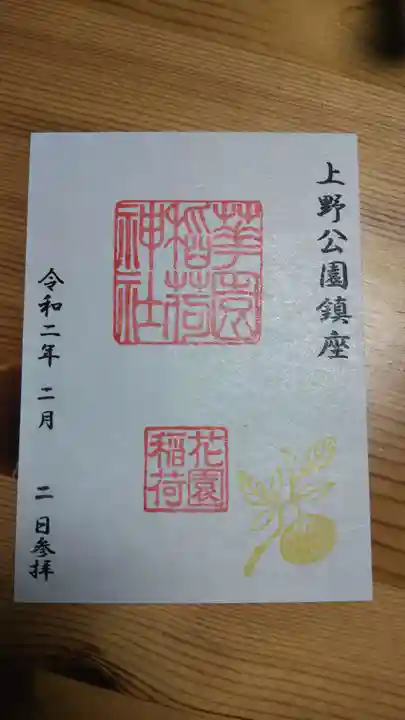 上野公園鎮座
華園
稲荷
神社
花園
稲荷
令和二年 二月 二日参拝